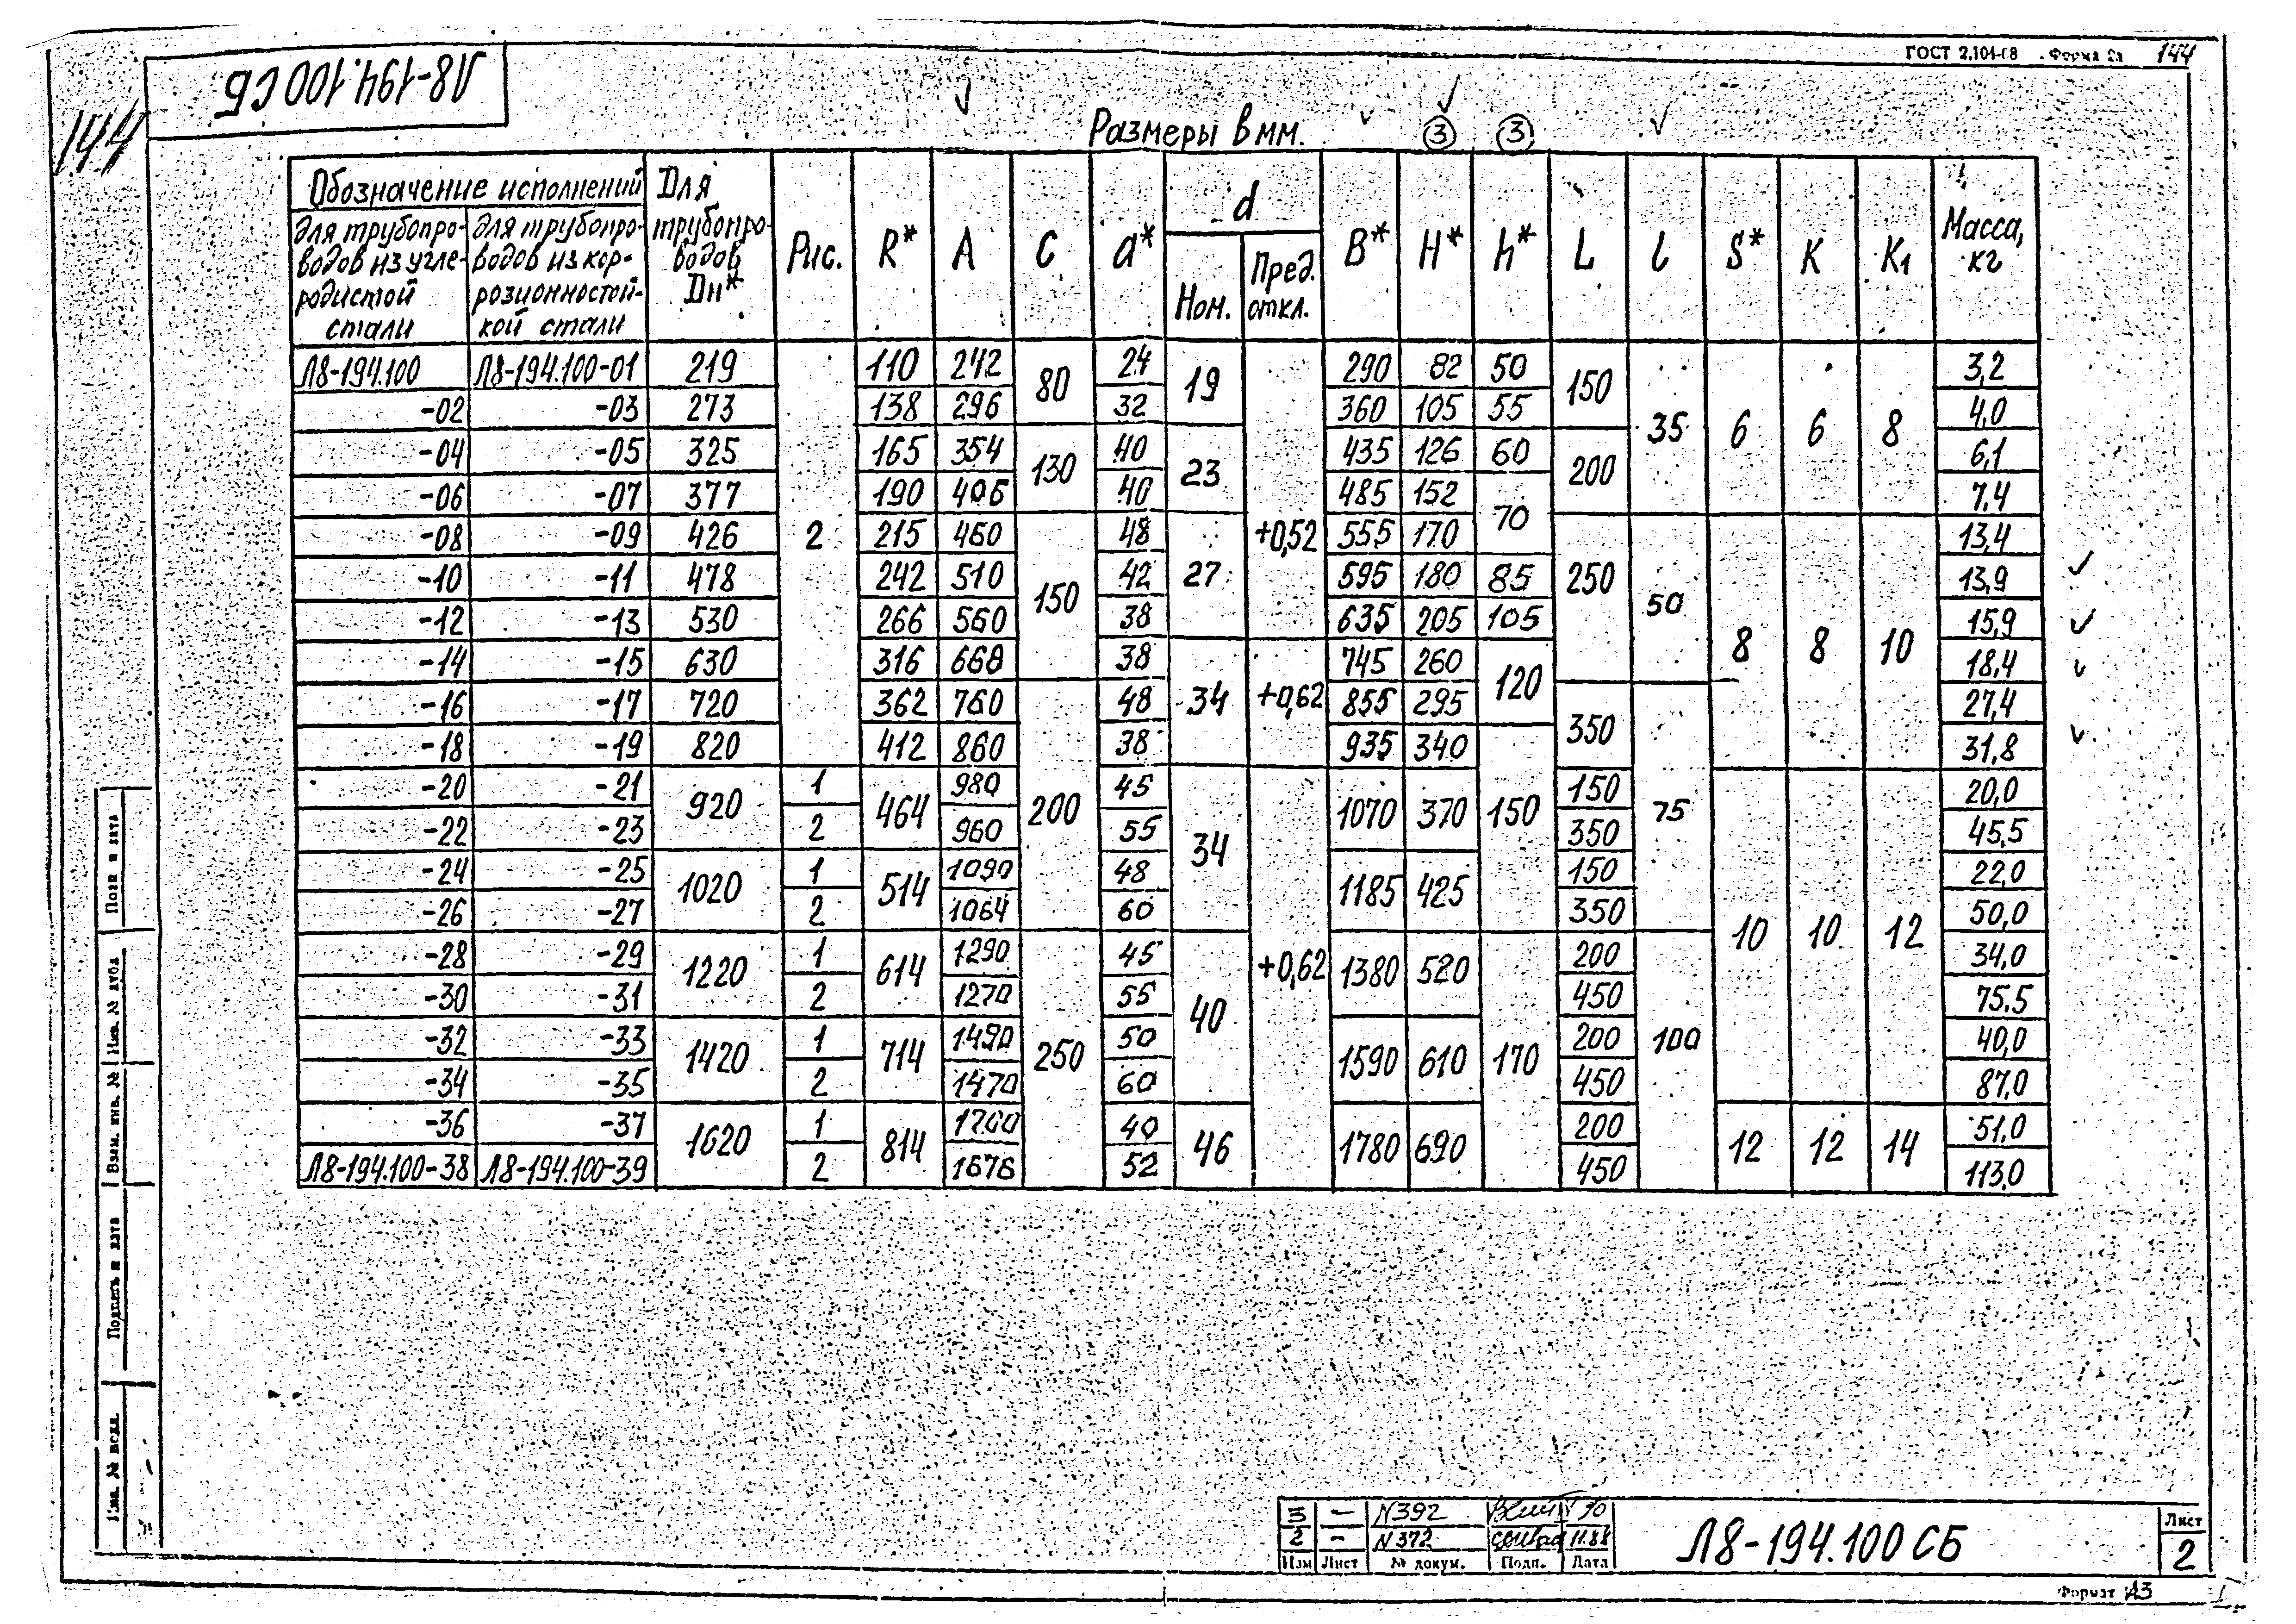 ГОСТ 2.104-68 Форма 2а 144
Л8-194.100 СБ
144
Размеры в мм.
3 3
Обозначение исполнений Для трубопроводов Dн* Рис. R* A C a* d B* H* h* L l S* K K1 Масса, кг
для трубопро- для трубопро-
водов из угле- водов из кор-
родистой розионностой-
стали кой стали
Ном. Пред. откл.
Л8-194.100 Л8-194.100-01 219 2 110 242 80 24 19 +0,52 290 82 50 150 35 6 6 8 3,2
-02 -03 273 138 296 32 360 105 55 4,0
-04 -05 325 165 354 130 40 23 435 126 60 200 6,1
-06 -07 377 190 406 40 485 152 70 7,4
-08 -09 426 215 460 150 48 27 555 170 250 50 8 8 10 13,4
-10 -11 478 242 510 42 595 180 85 13,9
-12 -13 530 266 560 38 635 205 105 15,9
-14 -15 630 316 668 38 34 +0,62 745 260 120 18,4
-16 -17 720 362 760 200 48 855 295 350 75 27,4
-18 -19 820 412 860 38 935 340 150 31,8
-20 -21 920 1 464 980 45 34 +0,62 1070 370 150 10 10 12 20,0
-22 -23 2 960 55 350 45,5
-24 -25 1020 1 514 1090 48 1185 425 150 22,0
-26 -27 2 1064 60 350 50,0
-28 -29 1220 1 614 1290 250 45 40 1380 520 170 200 100 34,0
-30 -31 2 1270 55 450 75,5
-32 -33 1420 1 714 1490 50 1590 610 200 40,0
-34 -35 2 1470 60 450 87,0
-36 -37 1620 1 814 1700 40 46 1780 690 200 12 12 14 51,0
Л8-194.100-38 Л8-194.100-39 2 1676 52 450 113,0
Подп и дата
Инв. № дубл
Взам. инв. №
Подпись и дата
Инв. № подл.
3 – N392 90
2 – N372 11.88
Изм Лист № докум. Подп. Дата
Л8-194.100 СБ
Лист
2
Формат А3